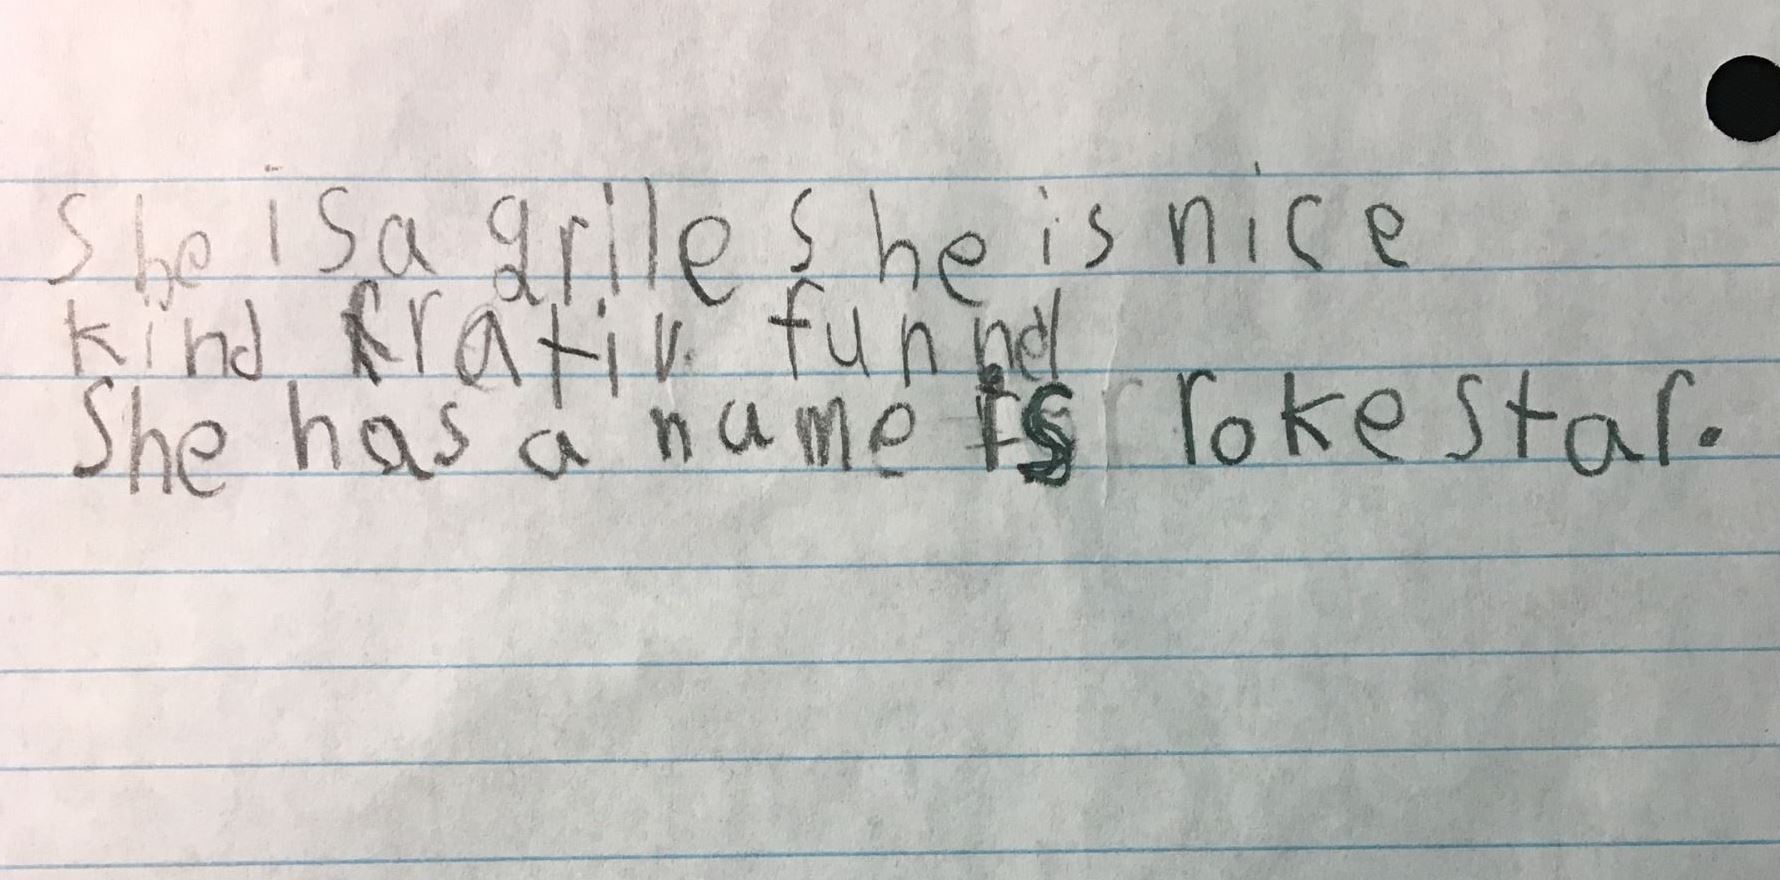 She is a grile she is nice
kind krativ funne
She has a name is roke star.